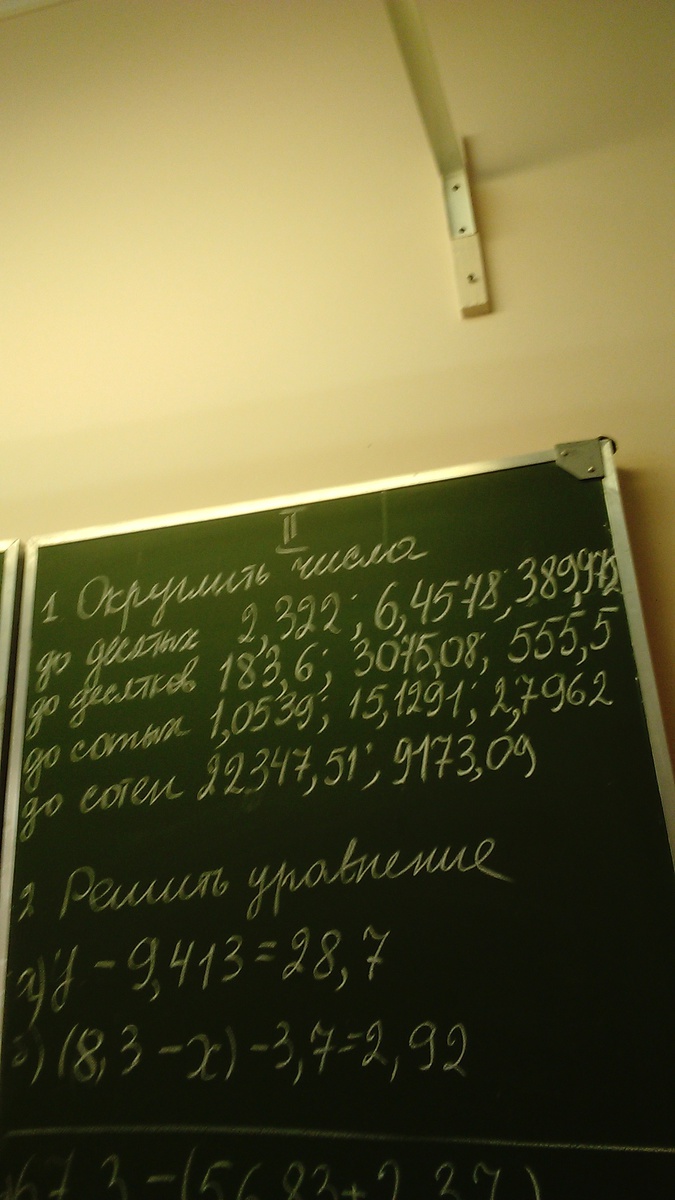 II
1 Округлить числа
до десятых 2,322; 6,4578; 389,972
до десятков 183,6; 3075,08; 555,5
до сотых 1,0539; 15,1291; 2,7962
до сотен 22347,51; 9173,09
2 Решить уравнение
а) y - 9,413 = 28,7
б) (8,3 - x) - 3,7 = 2,92
67,3 - (56,83 + 2,37)